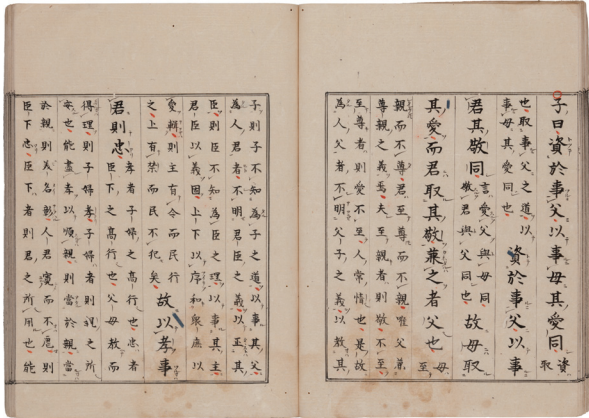 子曰資於事父以事母其愛同
資
取
也取事父之道以
事母其愛同也
資於事父以事
君其敬同
言愛父與母同
敬君與父同也
故母取
其愛而君取其敬兼之者父也
母
至
親而不尊君至尊而不親唯父兼
尊親之義焉夫至親者則敬不至
至尊者則愛不至人常情也是故
為人父者不明父子之義以教其
子則子不知為子之道以事其父
為人君者不明君臣之義以正其
臣則臣不知為臣之理以事其主
君臣以義固上下以序和衆庶以
愛輯則主有令而民行
之上有禁而民不犯矣
故以孝事
君則忠
孝者子婦之高行也忠者
臣下之高行也父母教而
得理則子婦孝子婦者則親之所
安也能盡孝以順親則當於親當
於親則美名彰人君寛而不虐則
臣下忠臣下者則君之所用也能